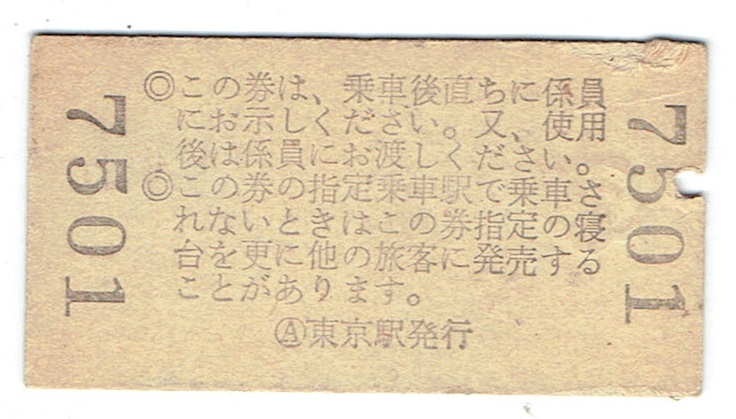 7501
◎この券は、乗車後直ちに係員
にお示しください。又、使用
後は係員にお渡しください。
◎この券の指定乗車駅で乗車さ
れないときはこの券指定の寝
台を更に他の旅客に発売する
ことがあります。
Ⓐ東京駅発行
7501